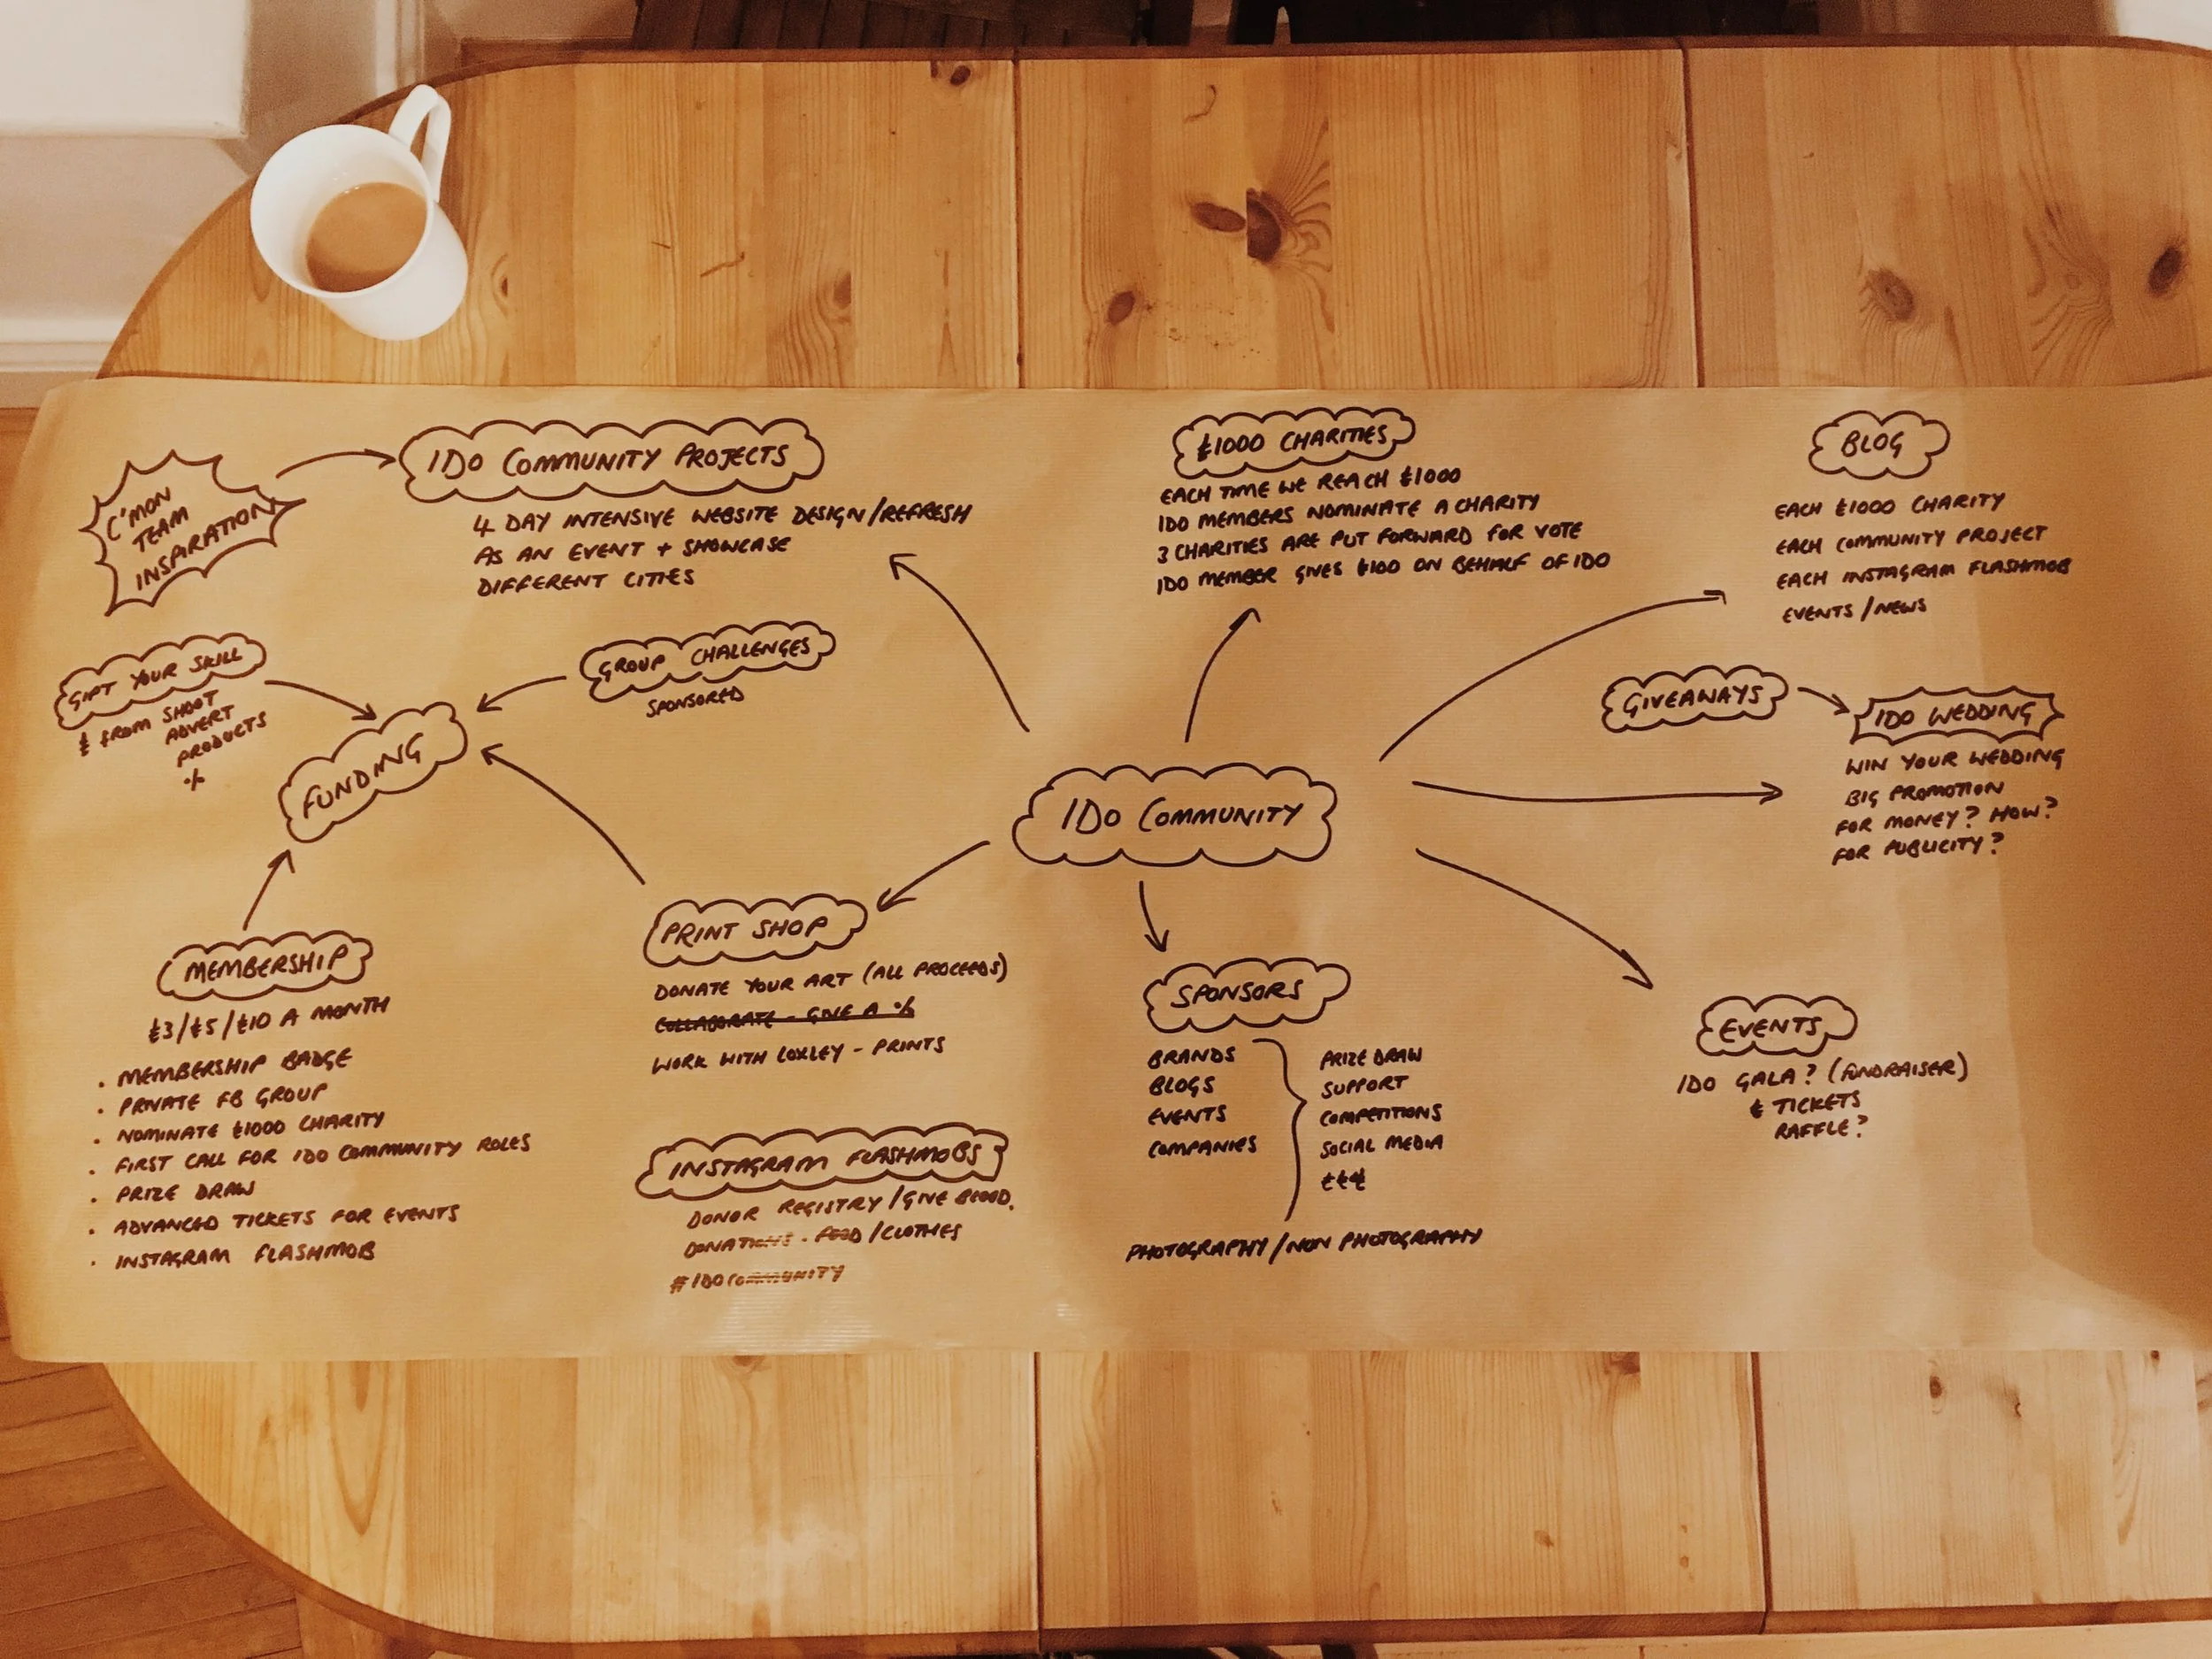 C'MON
TEAM
INSPIRATION
IDO COMMUNITY PROJECTS
4 DAY INTENSIVE WEBSITE DESIGN/REFRESH
AS AN EVENT + SHOWCASE
DIFFERENT CITIES
£1000 CHARITIES
EACH TIME WE REACH £1000
IDO MEMBERS NOMINATE A CHARITY
3 CHARITIES ARE PUT FORWARD FOR VOTE
IDO MEMBER GIVES £100 ON BEHALF OF IDO
BLOG
EACH £1000 CHARITY
EACH COMMUNITY PROJECT
EACH INSTAGRAM FLASHMOB
EVENTS/NEWS
GIFT YOUR SKILL
£ FROM SHOOT
ADVERT
PRODUCTS
%
FUNDING
GROUP CHALLENGES
SPONSORED
GIVEAWAYS
IDO WEDDING
WIN YOUR WEDDING
BIG PROMOTION
FOR MONEY? HOW?
FOR PUBLICITY?
IDO COMMUNITY
MEMBERSHIP
£3/£5/£10 A MONTH
• MEMBERSHIP BADGE
• PRIVATE FB GROUP
• NOMINATE £1000 CHARITY
• FIRST CALL FOR IDO COMMUNITY ROLES
• PRIZE DRAW
• ADVANCED TICKETS FOR EVENTS
• INSTAGRAM FLASHMOB
PRINT SHOP
DONATE YOUR ART (ALL PROCEEDS)
COLLABORATE - GIVE A %
WORK WITH LOXLEY - PRINTS
INSTAGRAM FLASHMOBS
DONOR REGISTRY/GIVE BLOOD.
DONATIONS - FOOD/CLOTHES
#IDOCOMMUNITY
SPONSORS
BRANDS
BLOGS
EVENTS
COMPANIES
PRIZE DRAW
SUPPORT
COMPETITIONS
SOCIAL MEDIA
£££
PHOTOGRAPHY/NON PHOTOGRAPHY
EVENTS
IDO GALA? (FUNDRAISER)
£ TICKETS
RAFFLE?